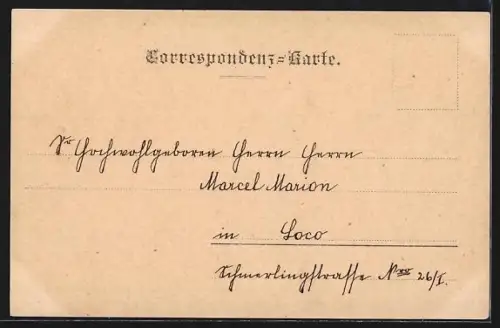 Correspondenz=Karte.
Sr Hochwohlgeboren Herrn Herrn
Marcel Marion
in Loco
Schmerlingstrasse Nro 26/I.